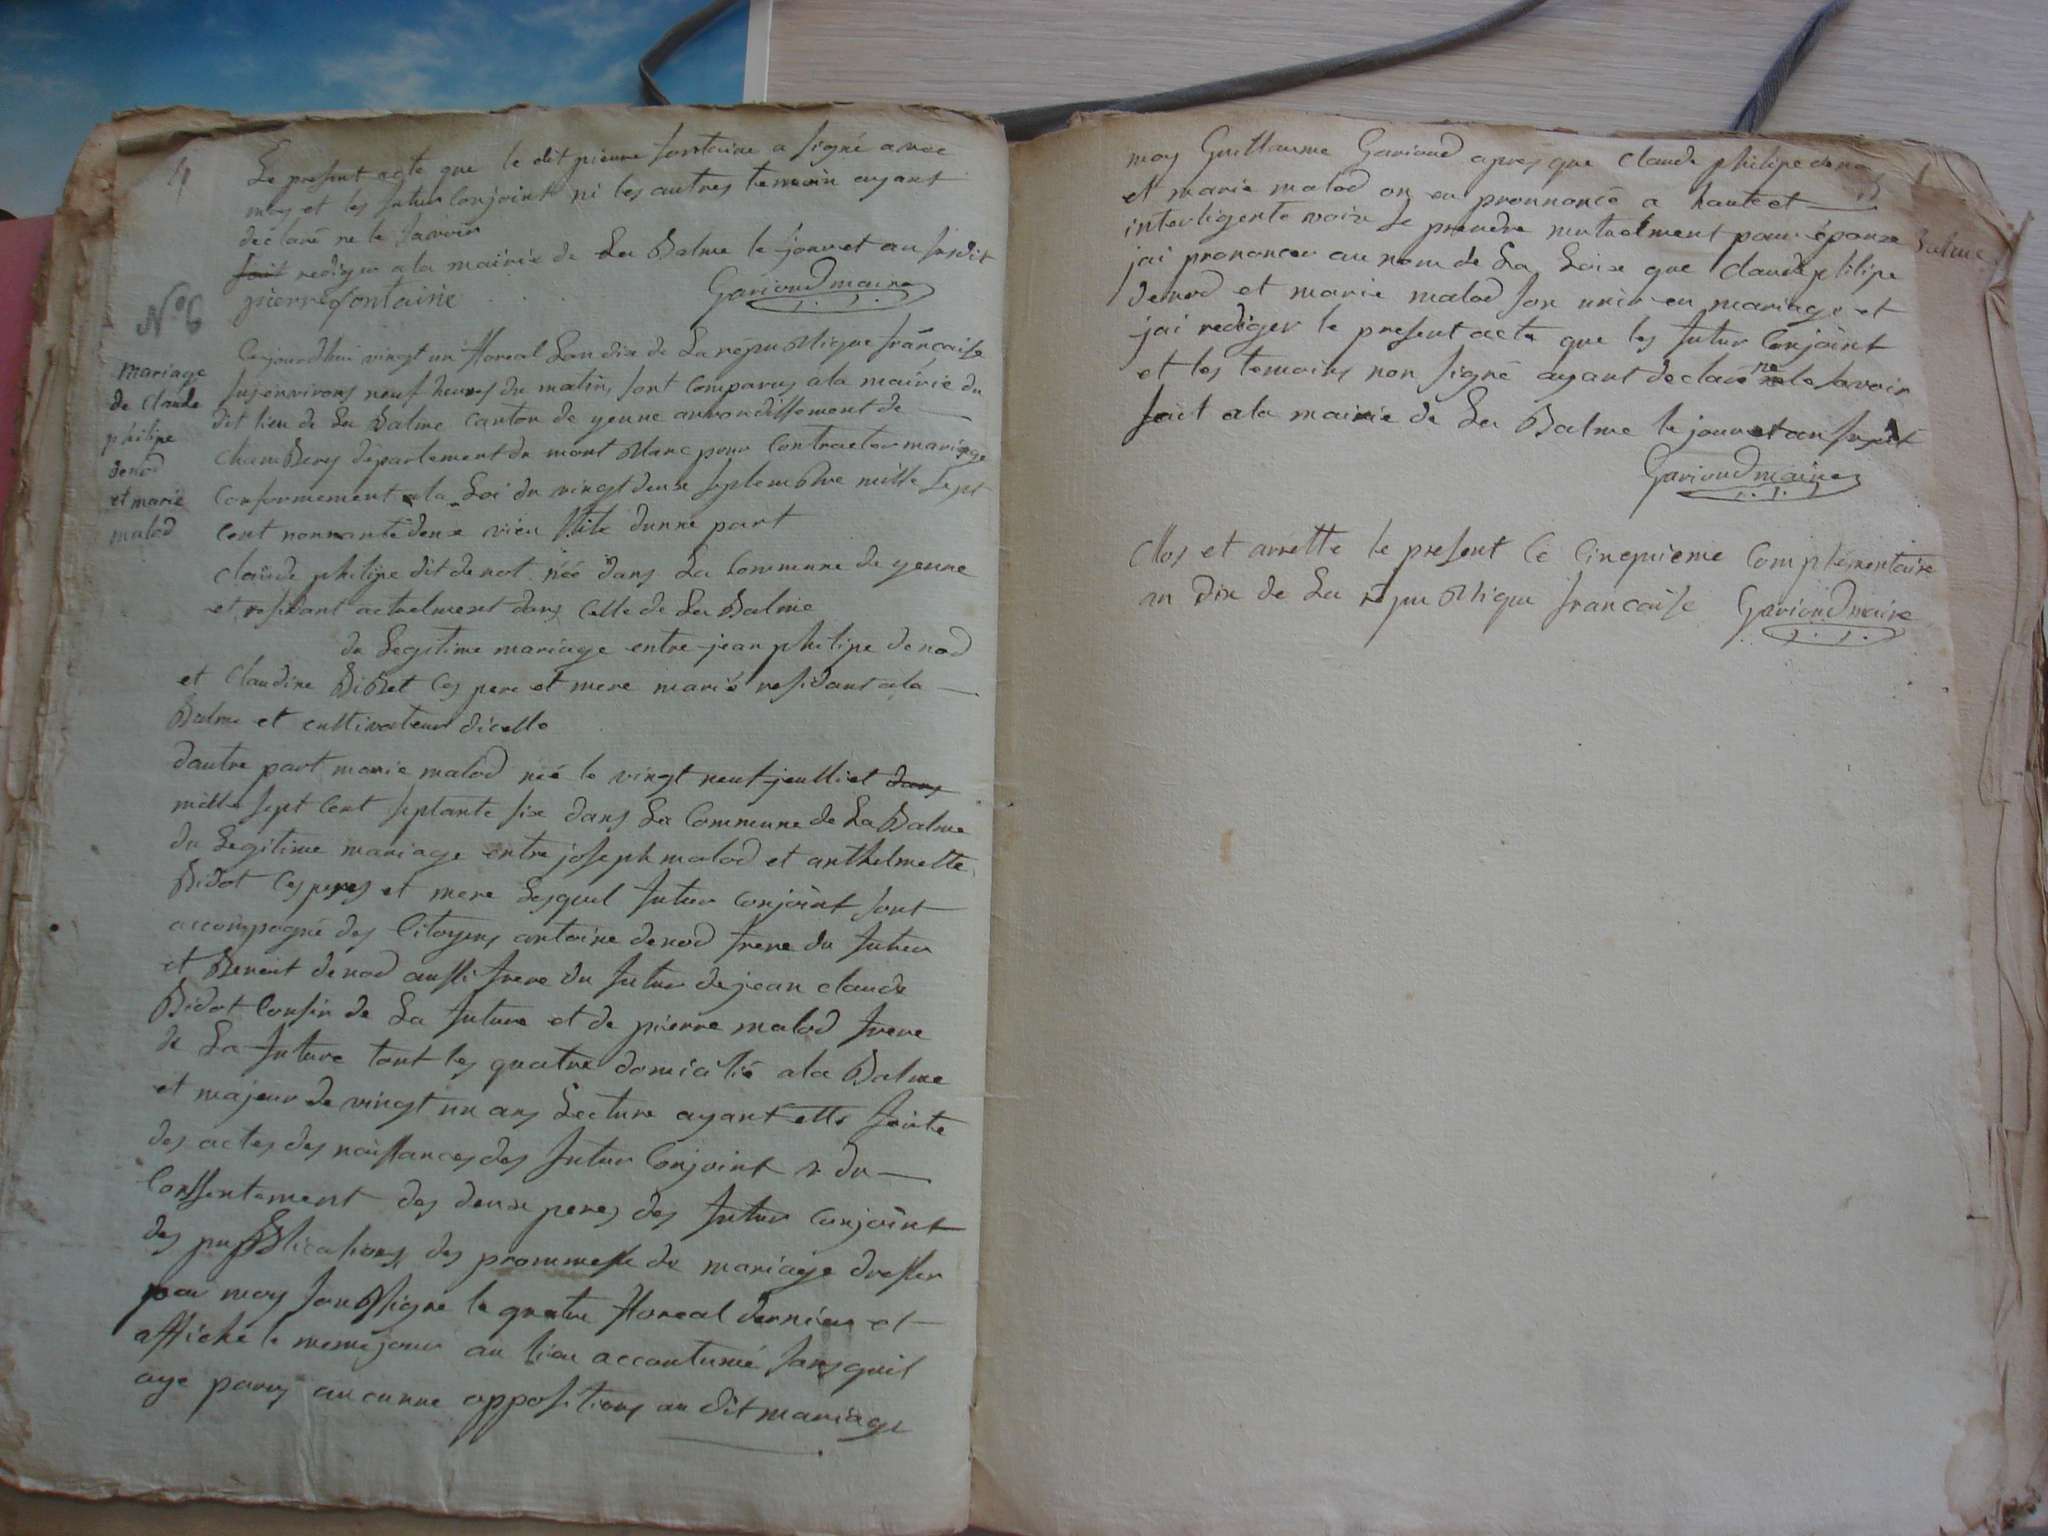 Le present acte que le dit pierre fontaine a signé avec
moy et les futur Conjoint ni les autres temoin ayant
déclaré ne le savoir
fait rediger a la mairie de La Balme le jour et an susdit
pierre fontaine Garioud maire
N° 6
mariage
de claude
philipe
denod
et marie
malod
Cejourdhui vingt un floreal Lan dix de La république française
sus environs neuf heures du matin, sont Comparus a la mairie du
dit lieu de La Balme Canton de yenne arrondissement de
chamBery département du mont Blanc pour Contracter mariage
Conformement a la Loi du vingt deux septemBre mille sept
cent nonnante deux vieu stile dunne part
claude philipe dit denot néé dans La Commune de yenne
et residant actuelment dans Celle de La Balme
du Legitime mariage entre jean philipe denod
et Claudine BiBet Ces pere et mere marié residant a la
Balme et cultivateur dicelle
dautre part marie malod néé le vingt neuf jeulliet dans
mille sept Cent septante six dans La Commune de La Balme
du Legitime mariage entre joseph malod et anthelmette
Bidot Ces peres et mere Lesquel futur Conjoint sont
accompagné des Citoyens antoine denod frere du futur
et Benoit denod aussi frere du futur de jean claude
Bidot Cousin de La future et de pierre malod frere
de La future tout les quatre domicilié a la Balme
et majeur de vingt un ans Lecture ayant etté faite
des actes des naissances des futur Conjoint & du
Consentement des deux peres des futur Conjoint
des publications des prommesse de mariage dresser
par moy soussigné le quatre floreal dernier et
affiché le meme jour au lieu accoutumé sans quil
aye parus aucunne oppositions au dit mariage
moy Guillaume Garioud apres que claude philipe denod
et marie malod on eu pronnoncé a haute et
interligente voix se prendre mutuelment pour épouse
jai prononcer au nom de La Loix que claude philipe
denod et marie malod son unir en mariage et
jai rediger le present acte que les futur Conjoint
et les temoins non signé ayant declaré ne le savoir
fait a la mairie de La Balme le jour et an susdit
Garioud maire
Balme
Clos et arretté le present Ce Cinquieme Complémentaire
an dix de La république francaise Garioud maire